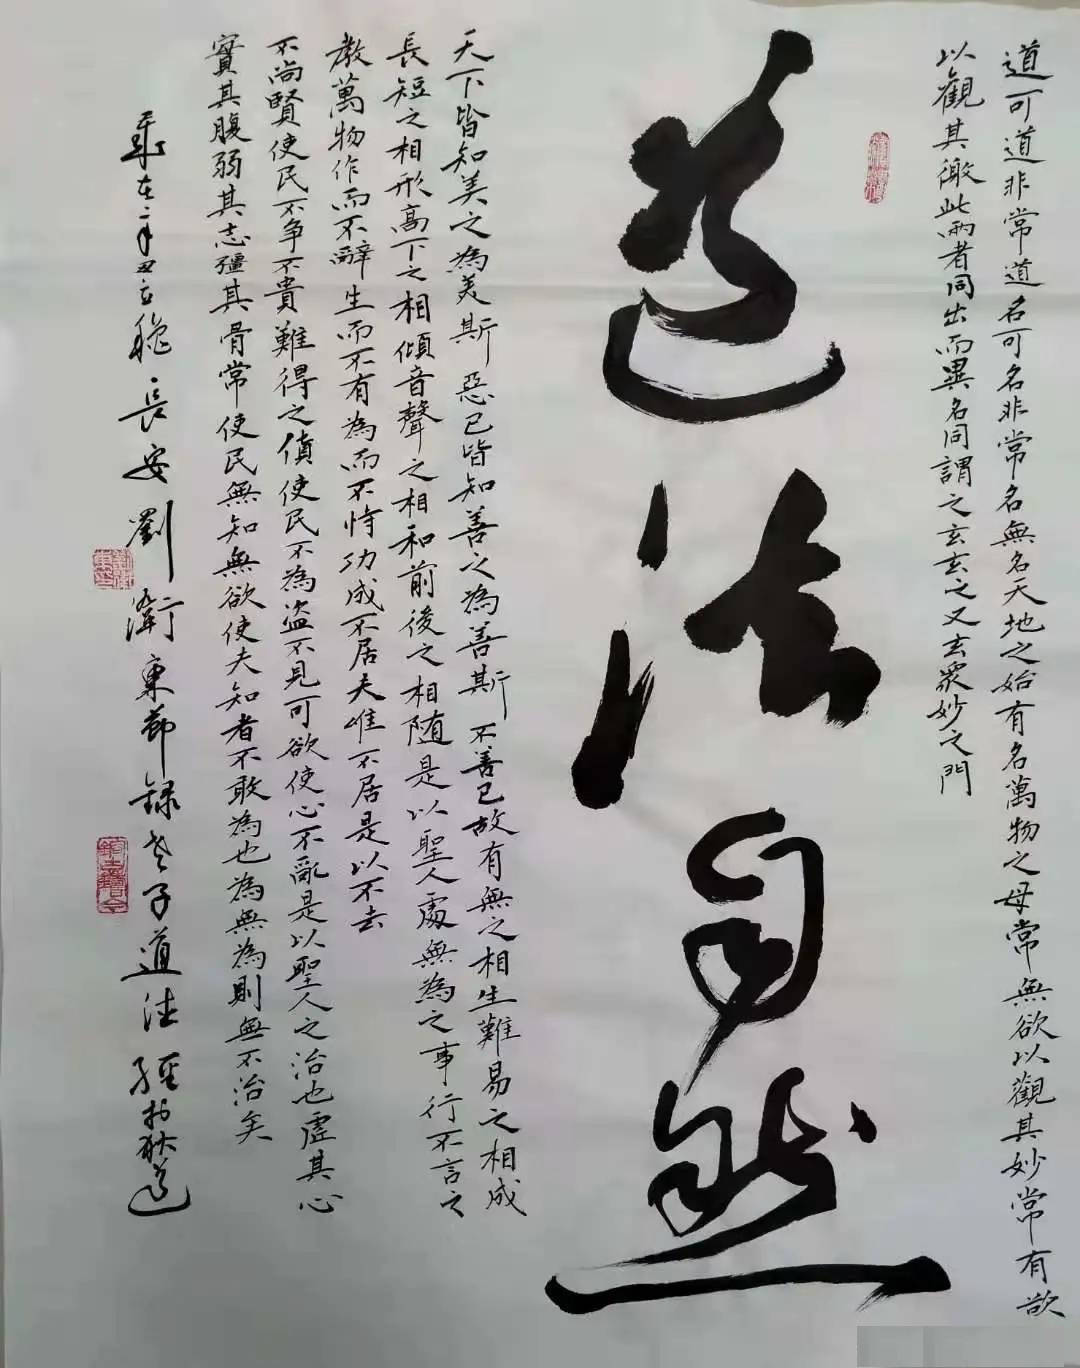 道可道非常道名可名非常名無名天地之始有名萬物之母常無欲以觀其妙常有欲
以觀其徼此兩者同出而異名同謂之玄玄之又玄眾妙之門
道法自然
天下皆知美之為美斯惡已皆知善之為善斯不善已故有無之相生難易之相成
長短之相形高下之相傾音聲之相和前後之相随是以聖人處無為之事行不言之
教萬物作而不辭生而不有為而不恃功成不居夫唯不居是以不去
不尚賢使民不争不貴難得之貨使民不為盗不見可欲使心不亂是以聖人之治也虛其心
實其腹弱其志彊其骨常使民無知無欲使夫知者不敢為也為無為則無不治矣
歲在辛丑立穐長安劉衛東節録老子道德經於狄道